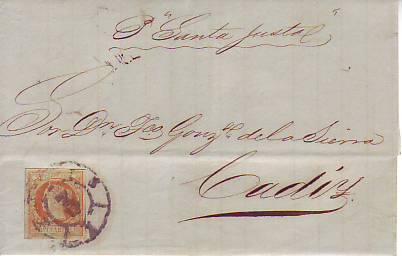 P. "Santa Justa"
Sr. Dn. Fco. Gonzz. de la Sierra
Cadiz.